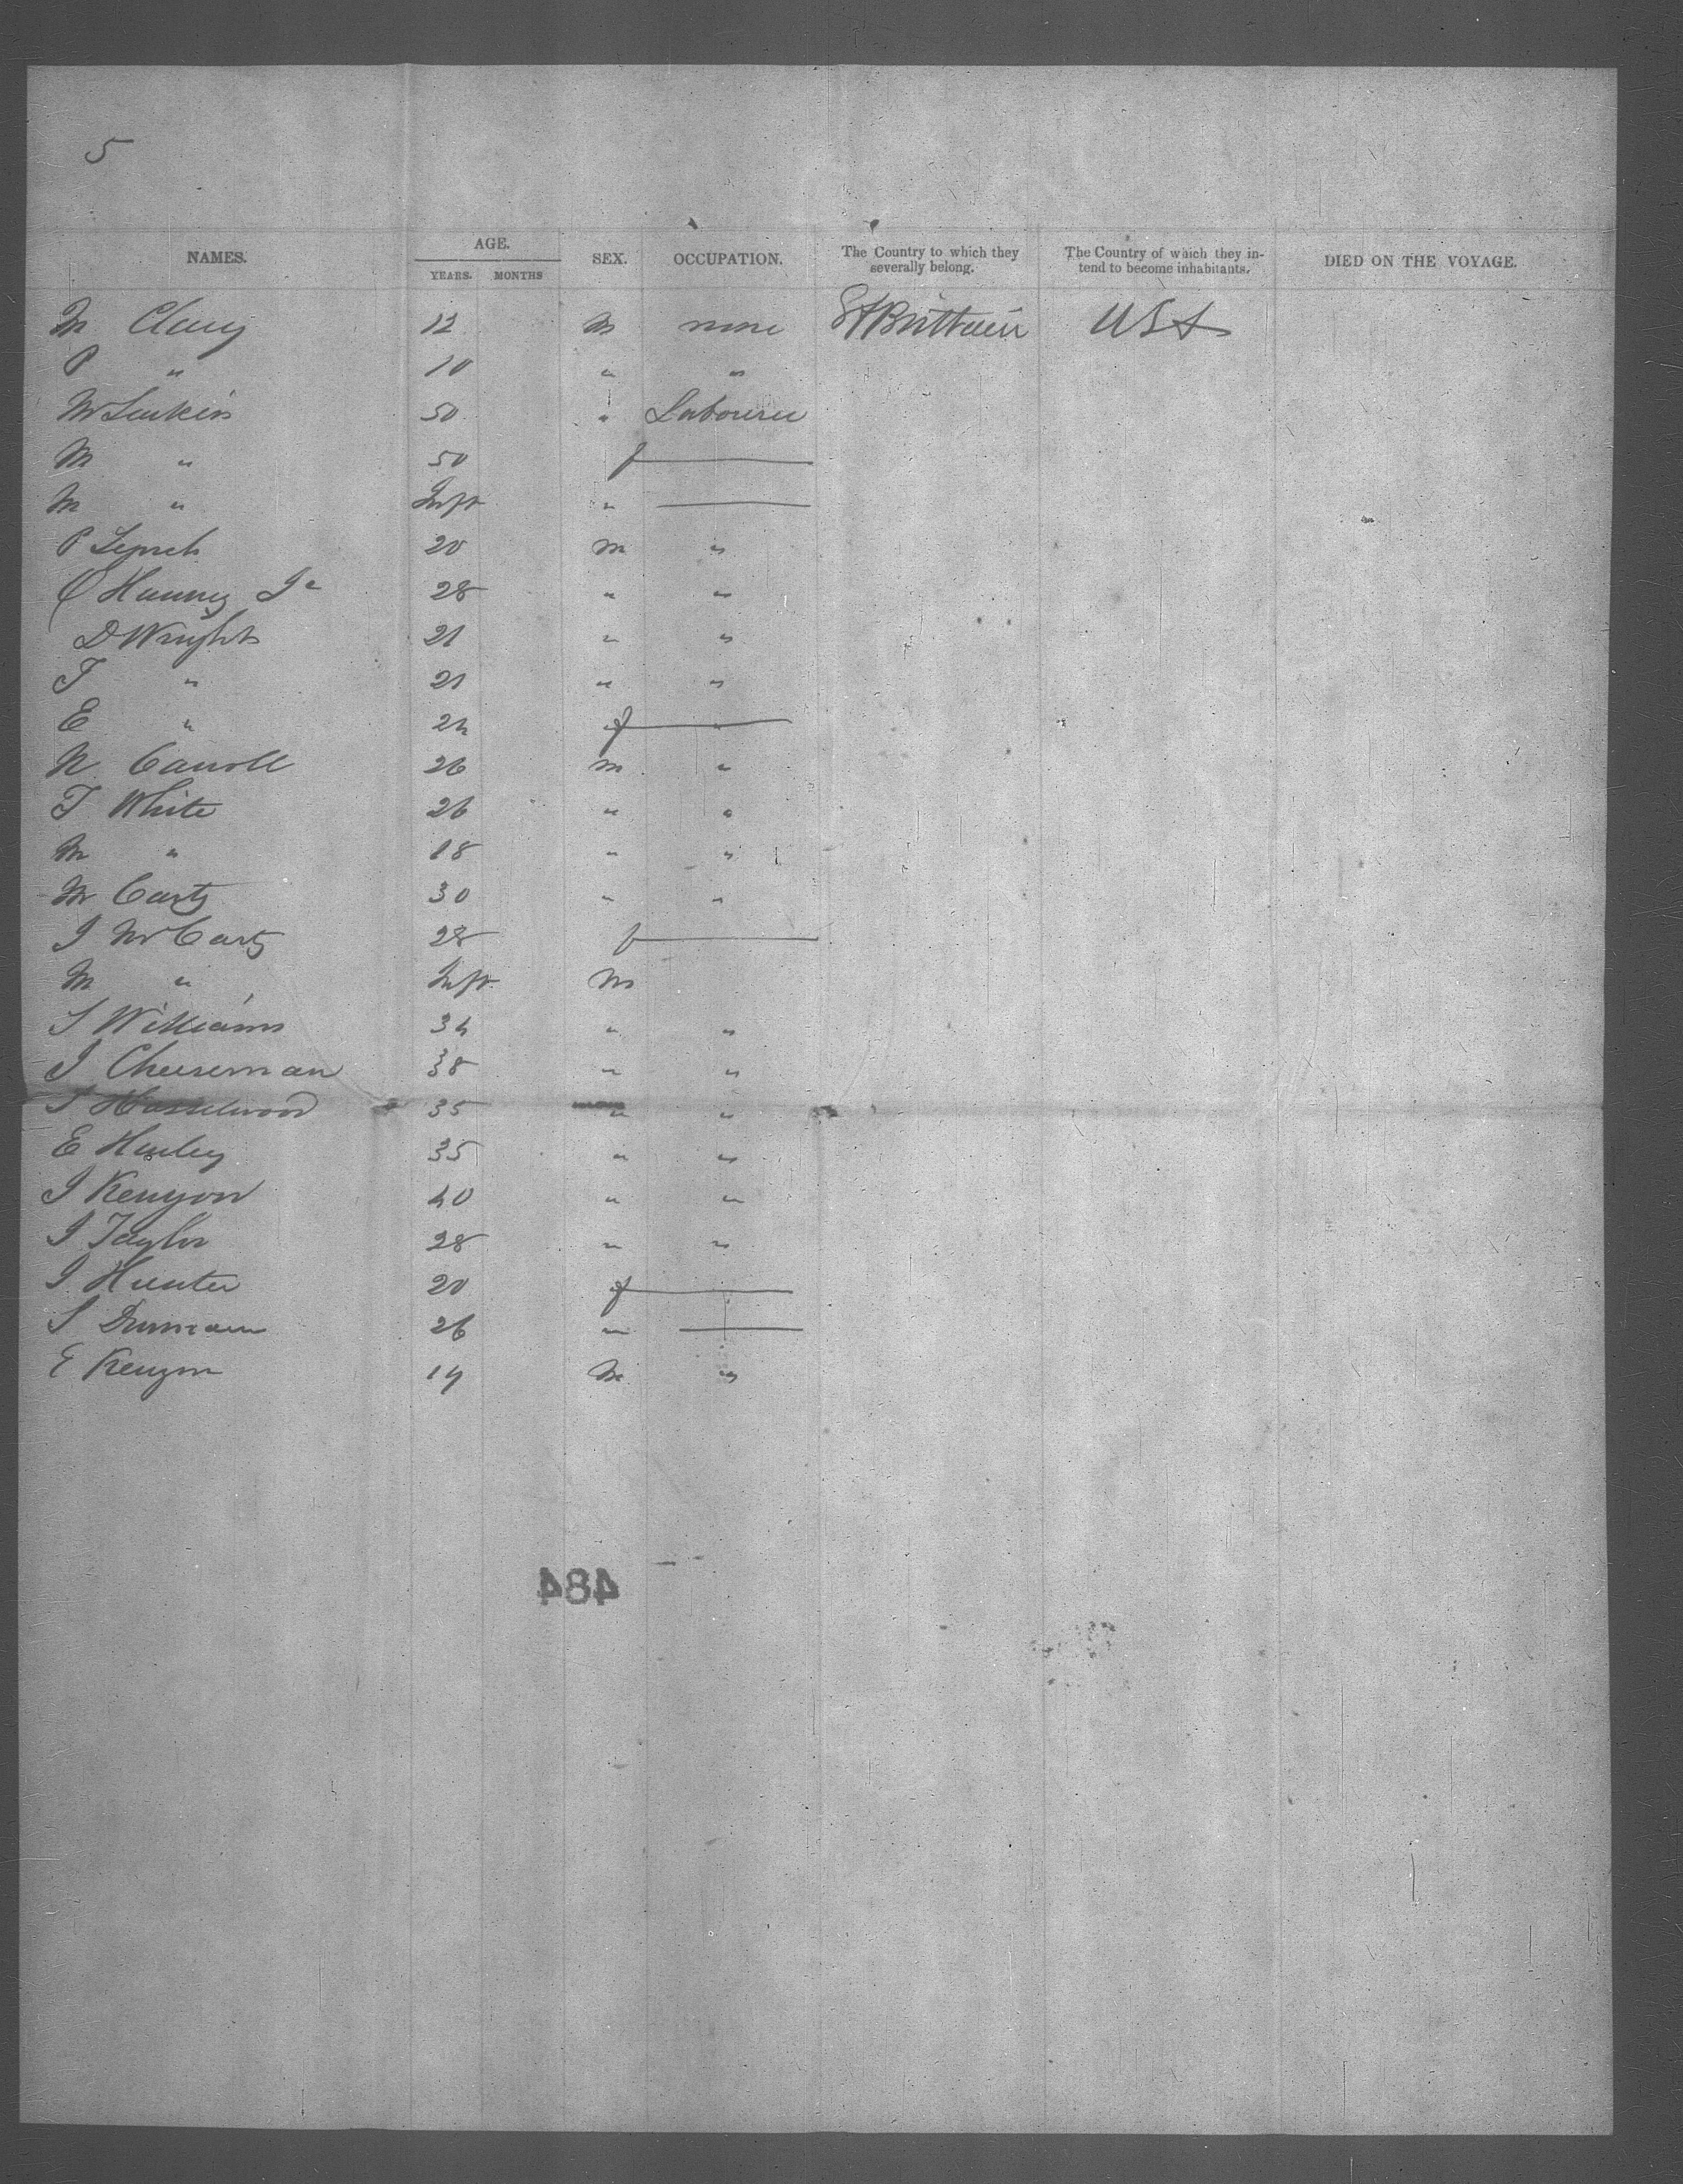 5
NAMES. AGE. YEARS. MONTHS SEX. OCCUPATION. The Country to which they severally belong. The Country of which they intend to become inhabitants. DIED ON THE VOYAGE.
M Clary 12 M none Gt Brittain USA
P " 10 " "
M Larkin 50 " Labourer
M " 50 f
M " Inft "
P Lynch 20 M "
28 " "
D Wright 21 " "
T " 21 " "
E " 24 f "
N Carroll 26 M "
T White 26 " "
M " 18 " "
M Carty 30 " "
J McCarty 28 f
M " Inft M
S Williams 34 " "
J Cheeseman 38 " "
S Hasselwood 35 " "
E Hurley 35 " "
J Kenyon 40 " "
J Taylor 28 " "
J Hunter 20 f
S Duncan 26 "
E Kenyon 14 M "
484